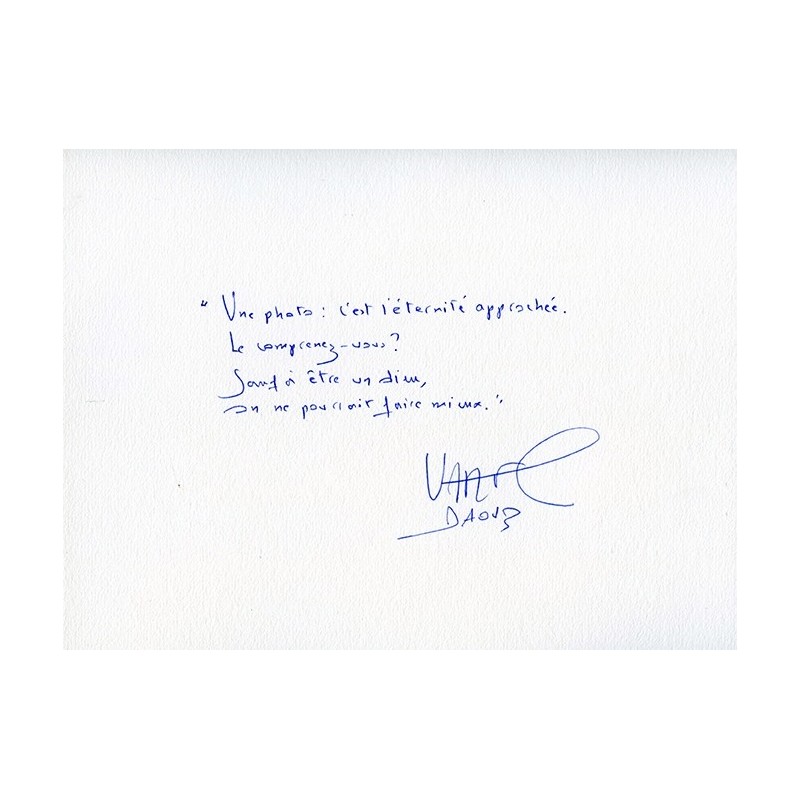 " Une photo : c'est l'éternité approchée.
Le comprenez-vous ?
Sauf à être un dieu,
on ne pourrait faire mieux. "
DAOUD